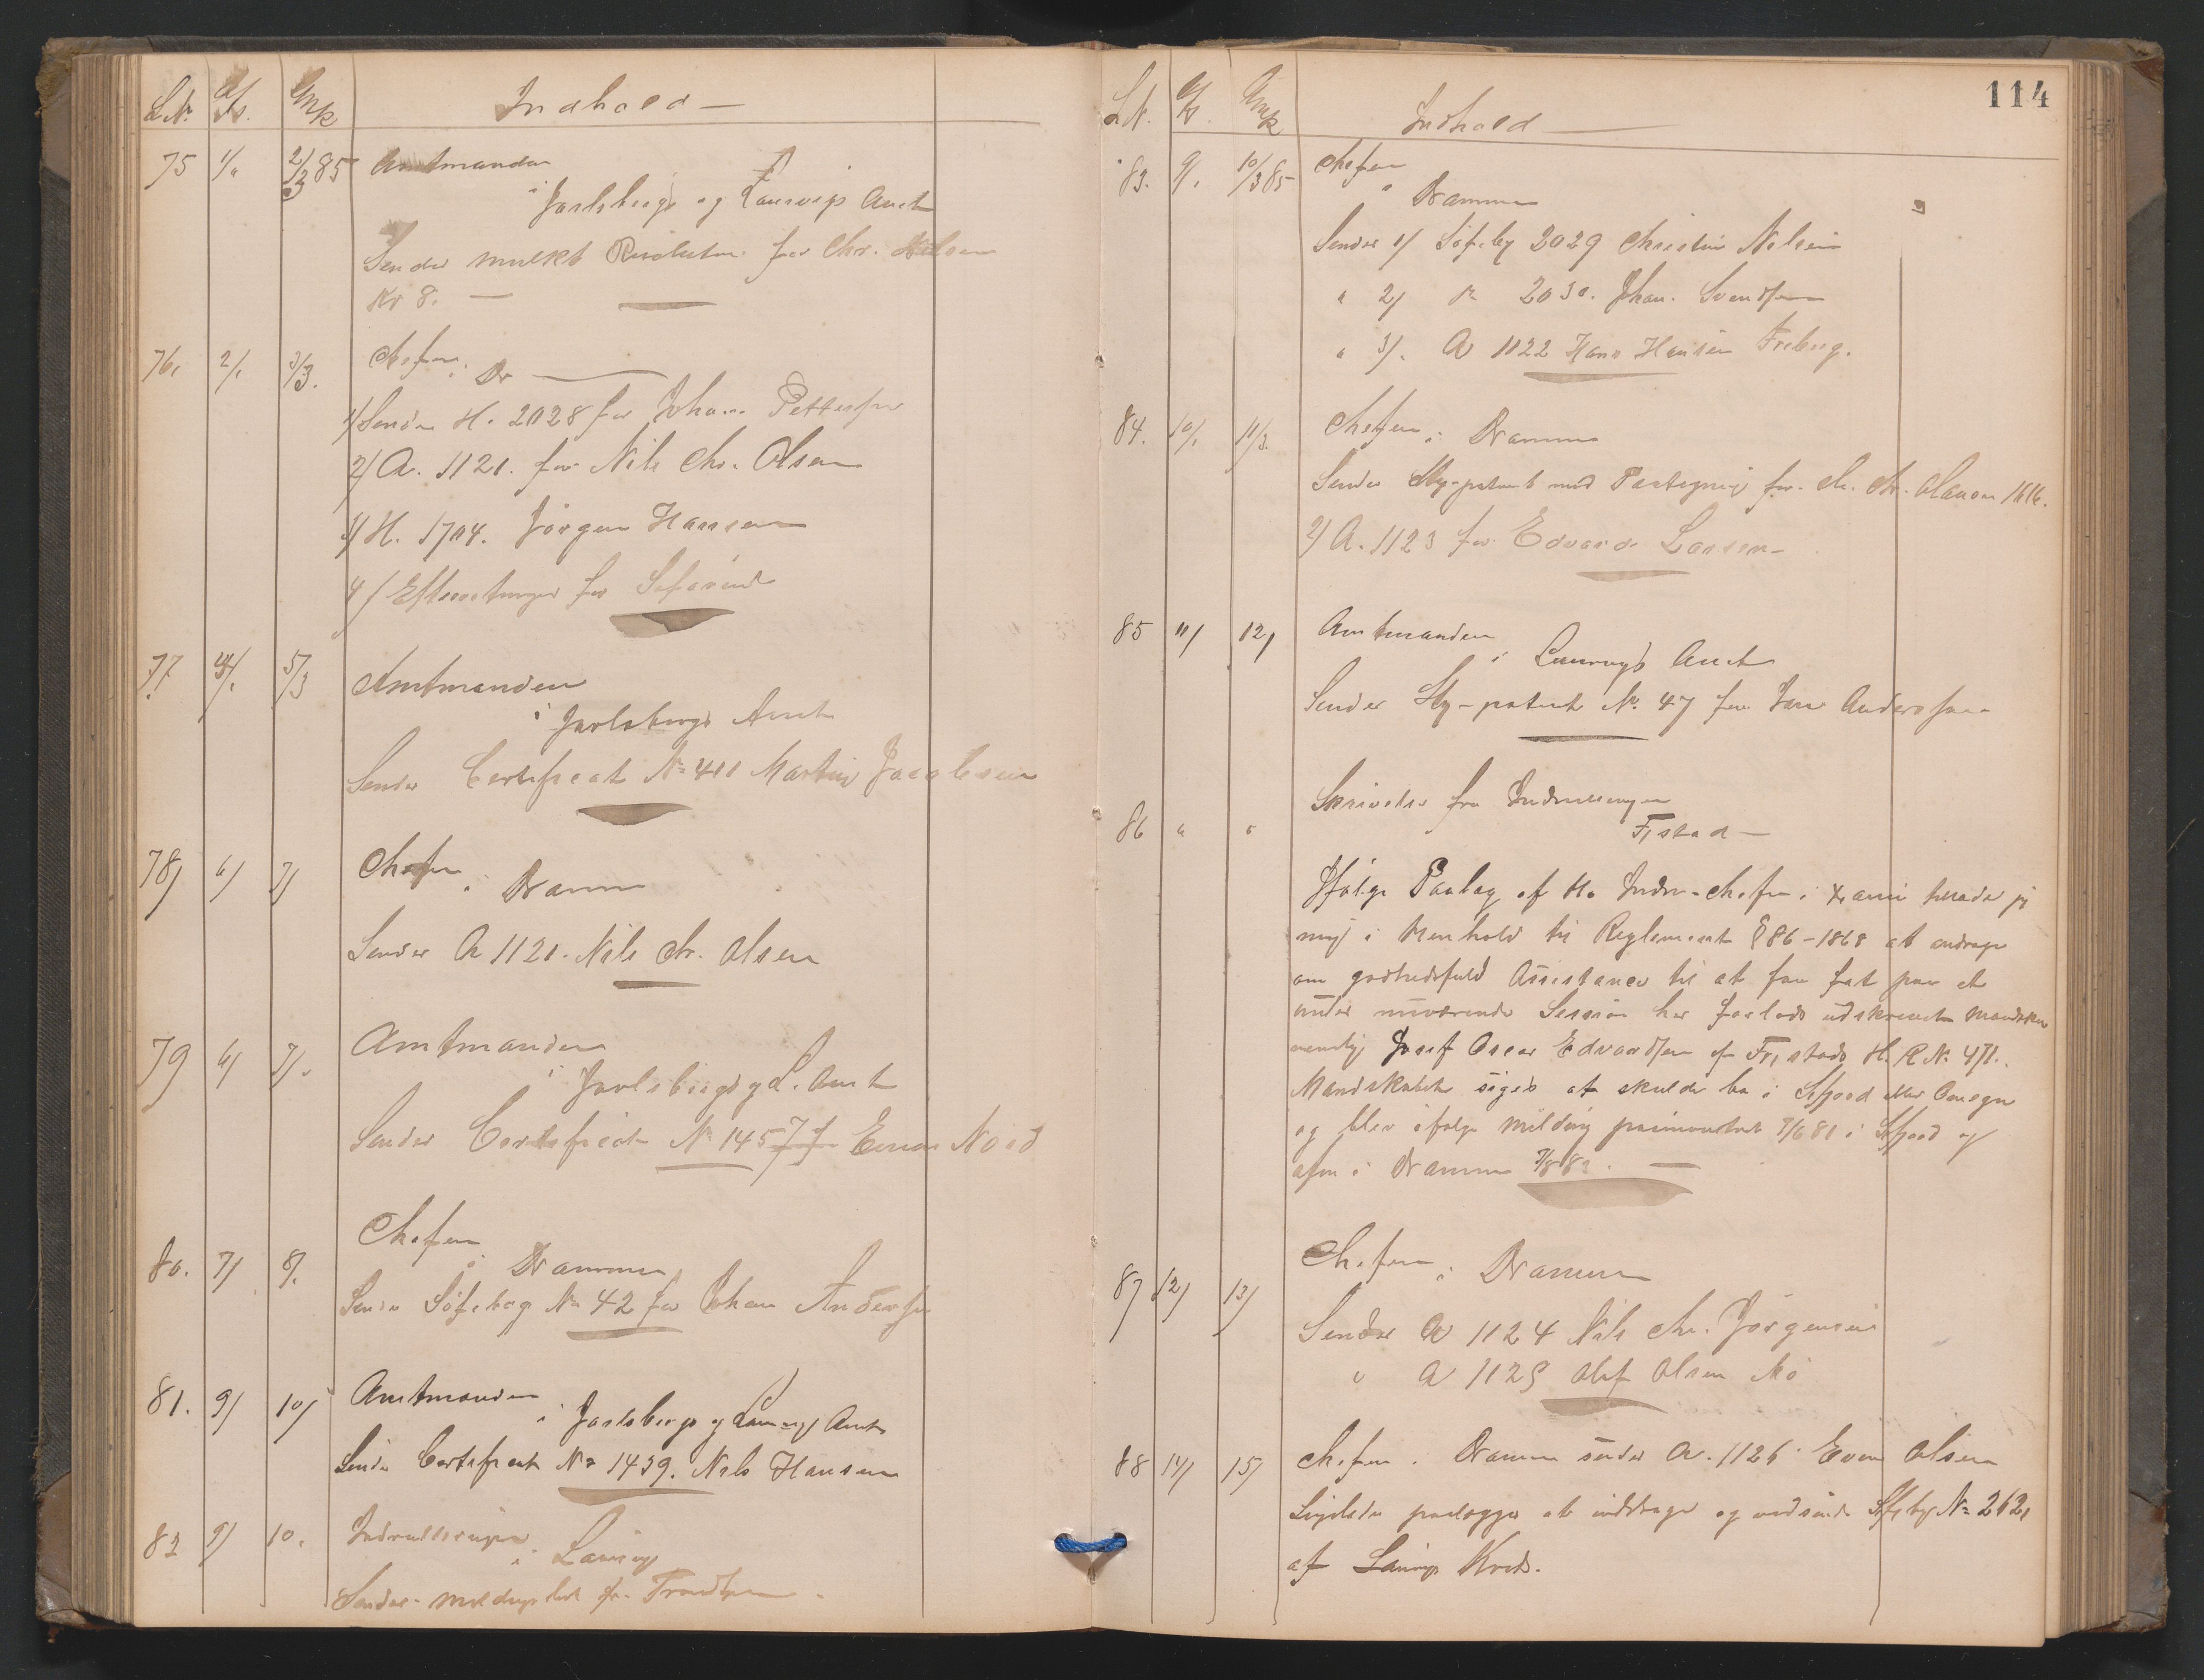 L.N. Indhold —
75 2/3 85 Amtmanden
i Jarlsberg og Laurvigs Amt
Sender mulkt Resolution for Chr. Nilsen
Kr 8. —
76. 2/. 3/3. Chefen i Dr
1/ Sender H. 2028 for Johan Pettersen
2/ A. 1121. for Nils Chr. Olsen
3/ H. 1704. Jörgen Hansen
4/ Efterretninger for Söfarende
77 4/. 5/3 Amtmanden
i Jarlsbergs Amt
Sender Certificat No 411 Martin Jacobsen
78/ 6/ 7/ Chefen i Dramm
Sender A 1121. Nils Chr. Olsen
79 6/ 7/. Amtmanden
i Jarlsbergs og L. Amt
Sender Certificat No 1457 Nord
80. 7/ 8/. Chefen
i Drammen
Sender Söfebog No 42 for Johan Andersen
81. 9/ 10/ Amtmanden
i Jarlsbergs og Laurvigs Amt
Sender Certificat No 1439. Nils Hansen
82 9/ 10. Indrulleringen
i Laurvig
Sender
114
L.N. Indhold —
83. 9/. 10/3 85 Chefen
i Drammen
Sender 1/ Söfebg 2029 Christin Nilsen
" 2/ 2030. Johan. Svendsen
" 3/. A 1122 Hans Hansen Freberg.
84. 10/. 11/3. Chefen i Drammen
Sender Hy-patent med Paategning for Chr. 1616.
2/ A. 1123 for Edvard Larsen
85 11/ 12/ Amtmanden
i Laurvigs Amt
Sender Hy-patent No. 47 for Andersen
86 " " Skrivelse fra Indrulleringen
Fr,stad —
Ifölge Paalæg af Hr Indr-chefen i Dramm tillader jeg
mig i Henhold til Reglement § 86 – 1868 at andrage
om godhedsfuld Assistance til at faa fat paa et
under nuværende Session her forlods udskrevet Mandskab
nemlig Josef Oscar Edvardsen af Fr,stads H. R N. 471.
Mandskabet siges at skulde bo i Sfjord eller Omegn
og blev ifölge melding paamönstret 7/6 81 i Sfjord og
afm i Drammen
87 12/ 13/ Chefen i Drammen
Sender A 1124 Nils Chr. Jörgensen
" A 1125 Olaf Olsen Mö
88 14/ 15/ Chefen i Dramm sender A. 1126 Even Olsen
Ligeledes paalægges at inddrage og nedsende Söfebg No 262,
af Laurvigs Kreds.